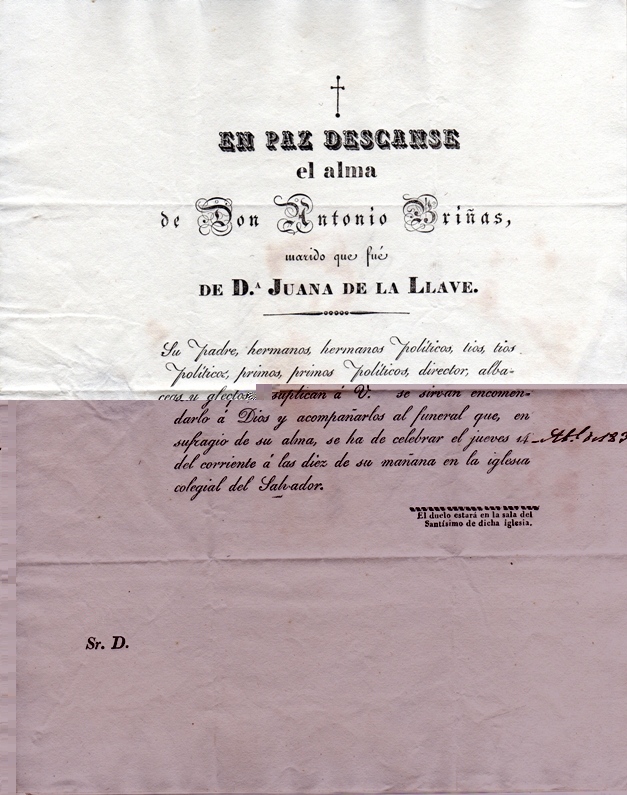 EN PAZ DESCANSE
el alma
de Don Antonio Briñas,
marido que fué
DE D.ᴬ JUANA DE LA LLAVE.
Su Padre, hermanos, hermanos Políticos, tios, tios
Políticos, primos, primos Políticos, director, alba-
ceas y afectos, suplican á V. se sirvan encomen-
darlo á Dios y acompañarlos al funeral que, en
sufragio de su alma, se ha de celebrar el jueves 14
del corriente á las diez de su mañana en la iglesia
colegial del Salvador.
El duelo estará en la sala del
Santísimo de dicha iglesia.
Sr. D.